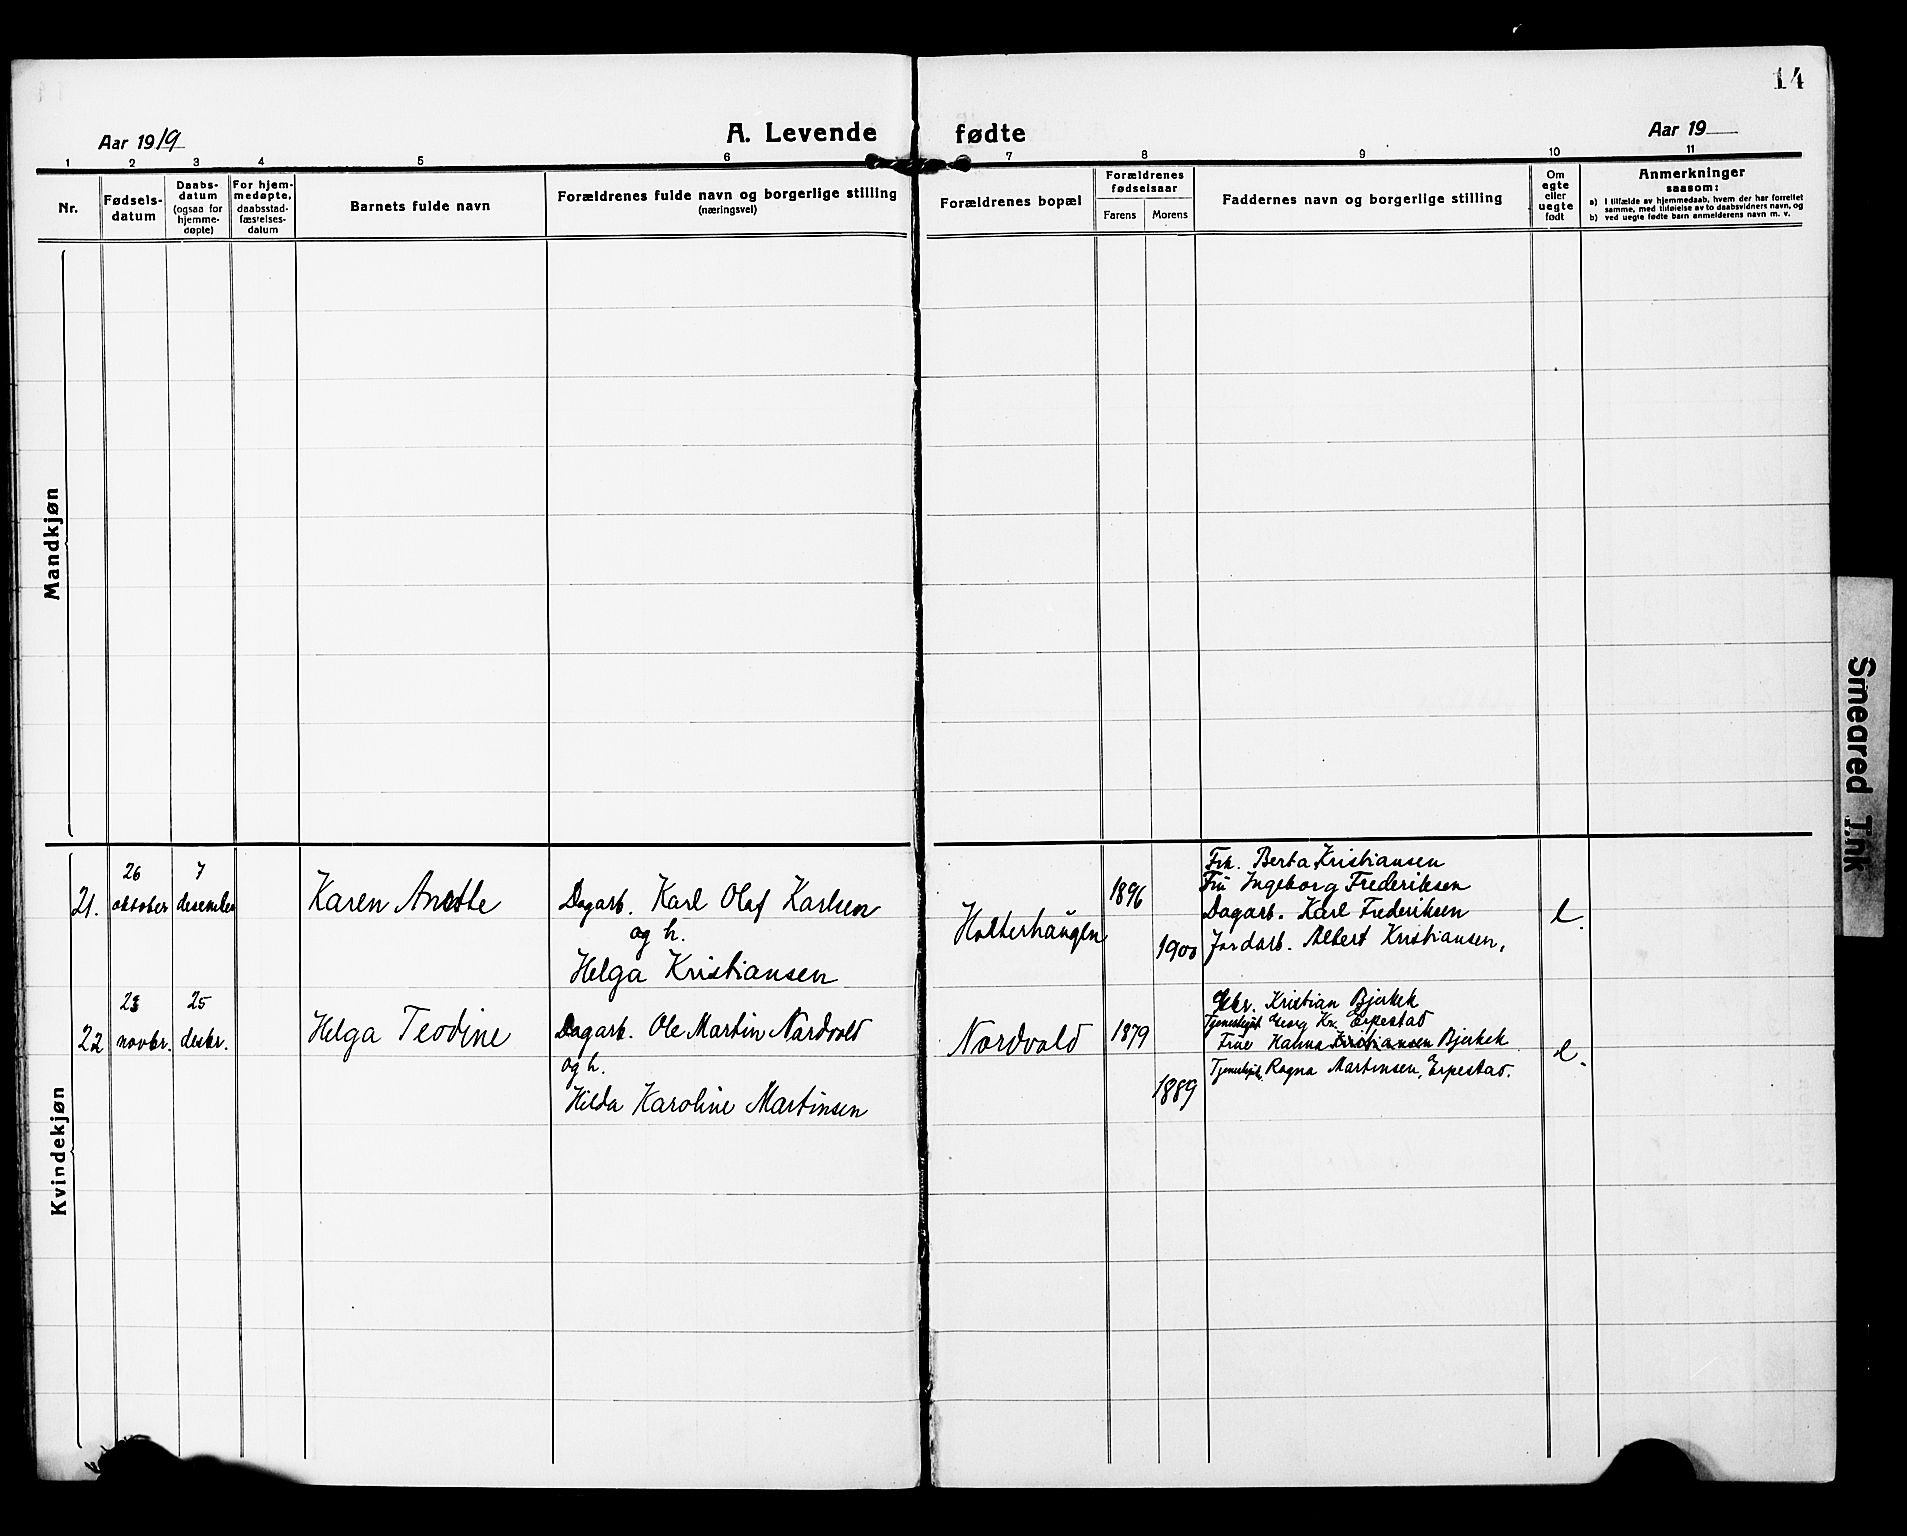 14
Aar 1919
A. Levende fødte
Aar 19
1 2 3 4 5 6 7 8 9 10 11
Nr.
Fødsels-
datum
Daabs-
datum
(ogsaa for
hjemme-
døpte)
For hjem-
medøpte,
daabsstad-
fæstelses-
datum
Barnets fulde navn
Forældrenes fulde navn og borgerlige stilling
(næringsvei)
Forældrenes bopæl
Forældrenes
fødselsaar
Farens Morens
Faddernes navn og borgerlige stilling
Om
egte
eller
uegte
født
Anmerkninger
saasom:
a) I tilfælde av hjemmedaab, hvem der har forrettet
samme, med tilføielse av to daabsvidners navn, og
b) ved uegte fødte barn anmelderens navn m. v.
Mandkjøn
Kvindekjøn
21.
26
oktober
7
desember
Karen Anette
Dagarb. Karl Olaf Karlsen
og h.
Helga Kristiansen
Holterhaugen
1896
1900
Frk. Berta Kristiansen
Fru Ingeborg Frederiksen
Dagarb. Karl Frederiksen
Jordarb. Albert Kristiansen,
e.
22
23
novbr.
25
desbr.
Helga Teodine
Dagarb. Ole Martin Nordvold
og h.
Hilda Karoline Martinsen
Nordvold
1879
1889
Gbr. Kristian Bjerkek
Georg Kr. Erpestad
Frue Hanna Kristiansen Bjerkek
Ragna Martinsen, Erpestad.
e.
Smeared Ink